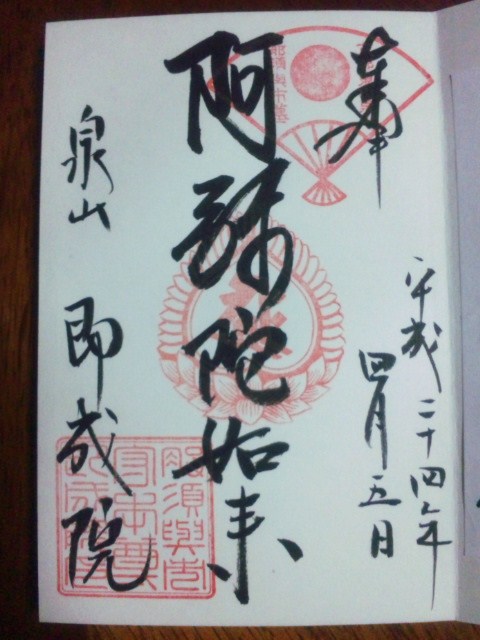 奉
平成二十四年
四月五日
阿弥陀如来
泉山 即成院